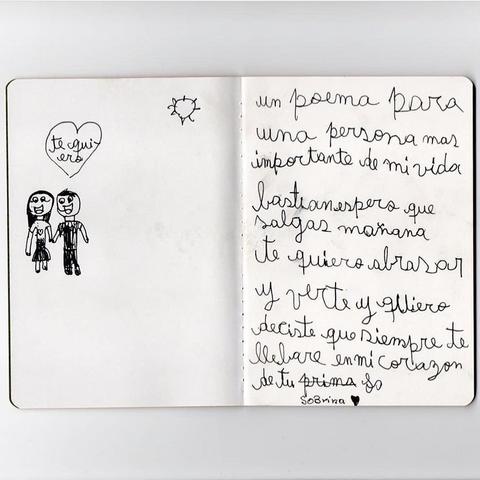 te qui-
ero
un poema para
una persona mas
importante de mi vida
bastian espero que
salgas mañana
te quiero abrasar
y verte y quiero
deciste que siempre te
llebare en mi corazon
de tu prima so
SoBrina ♥